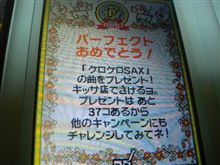 P
パーフェクト
おめでとう!
「ケロケロSAX」
の曲をプレゼント!
キッサ店できけるヨ。
プレゼントは あと
37コあるから
他のキャンペーンにも
チャレンジしてみてネ!